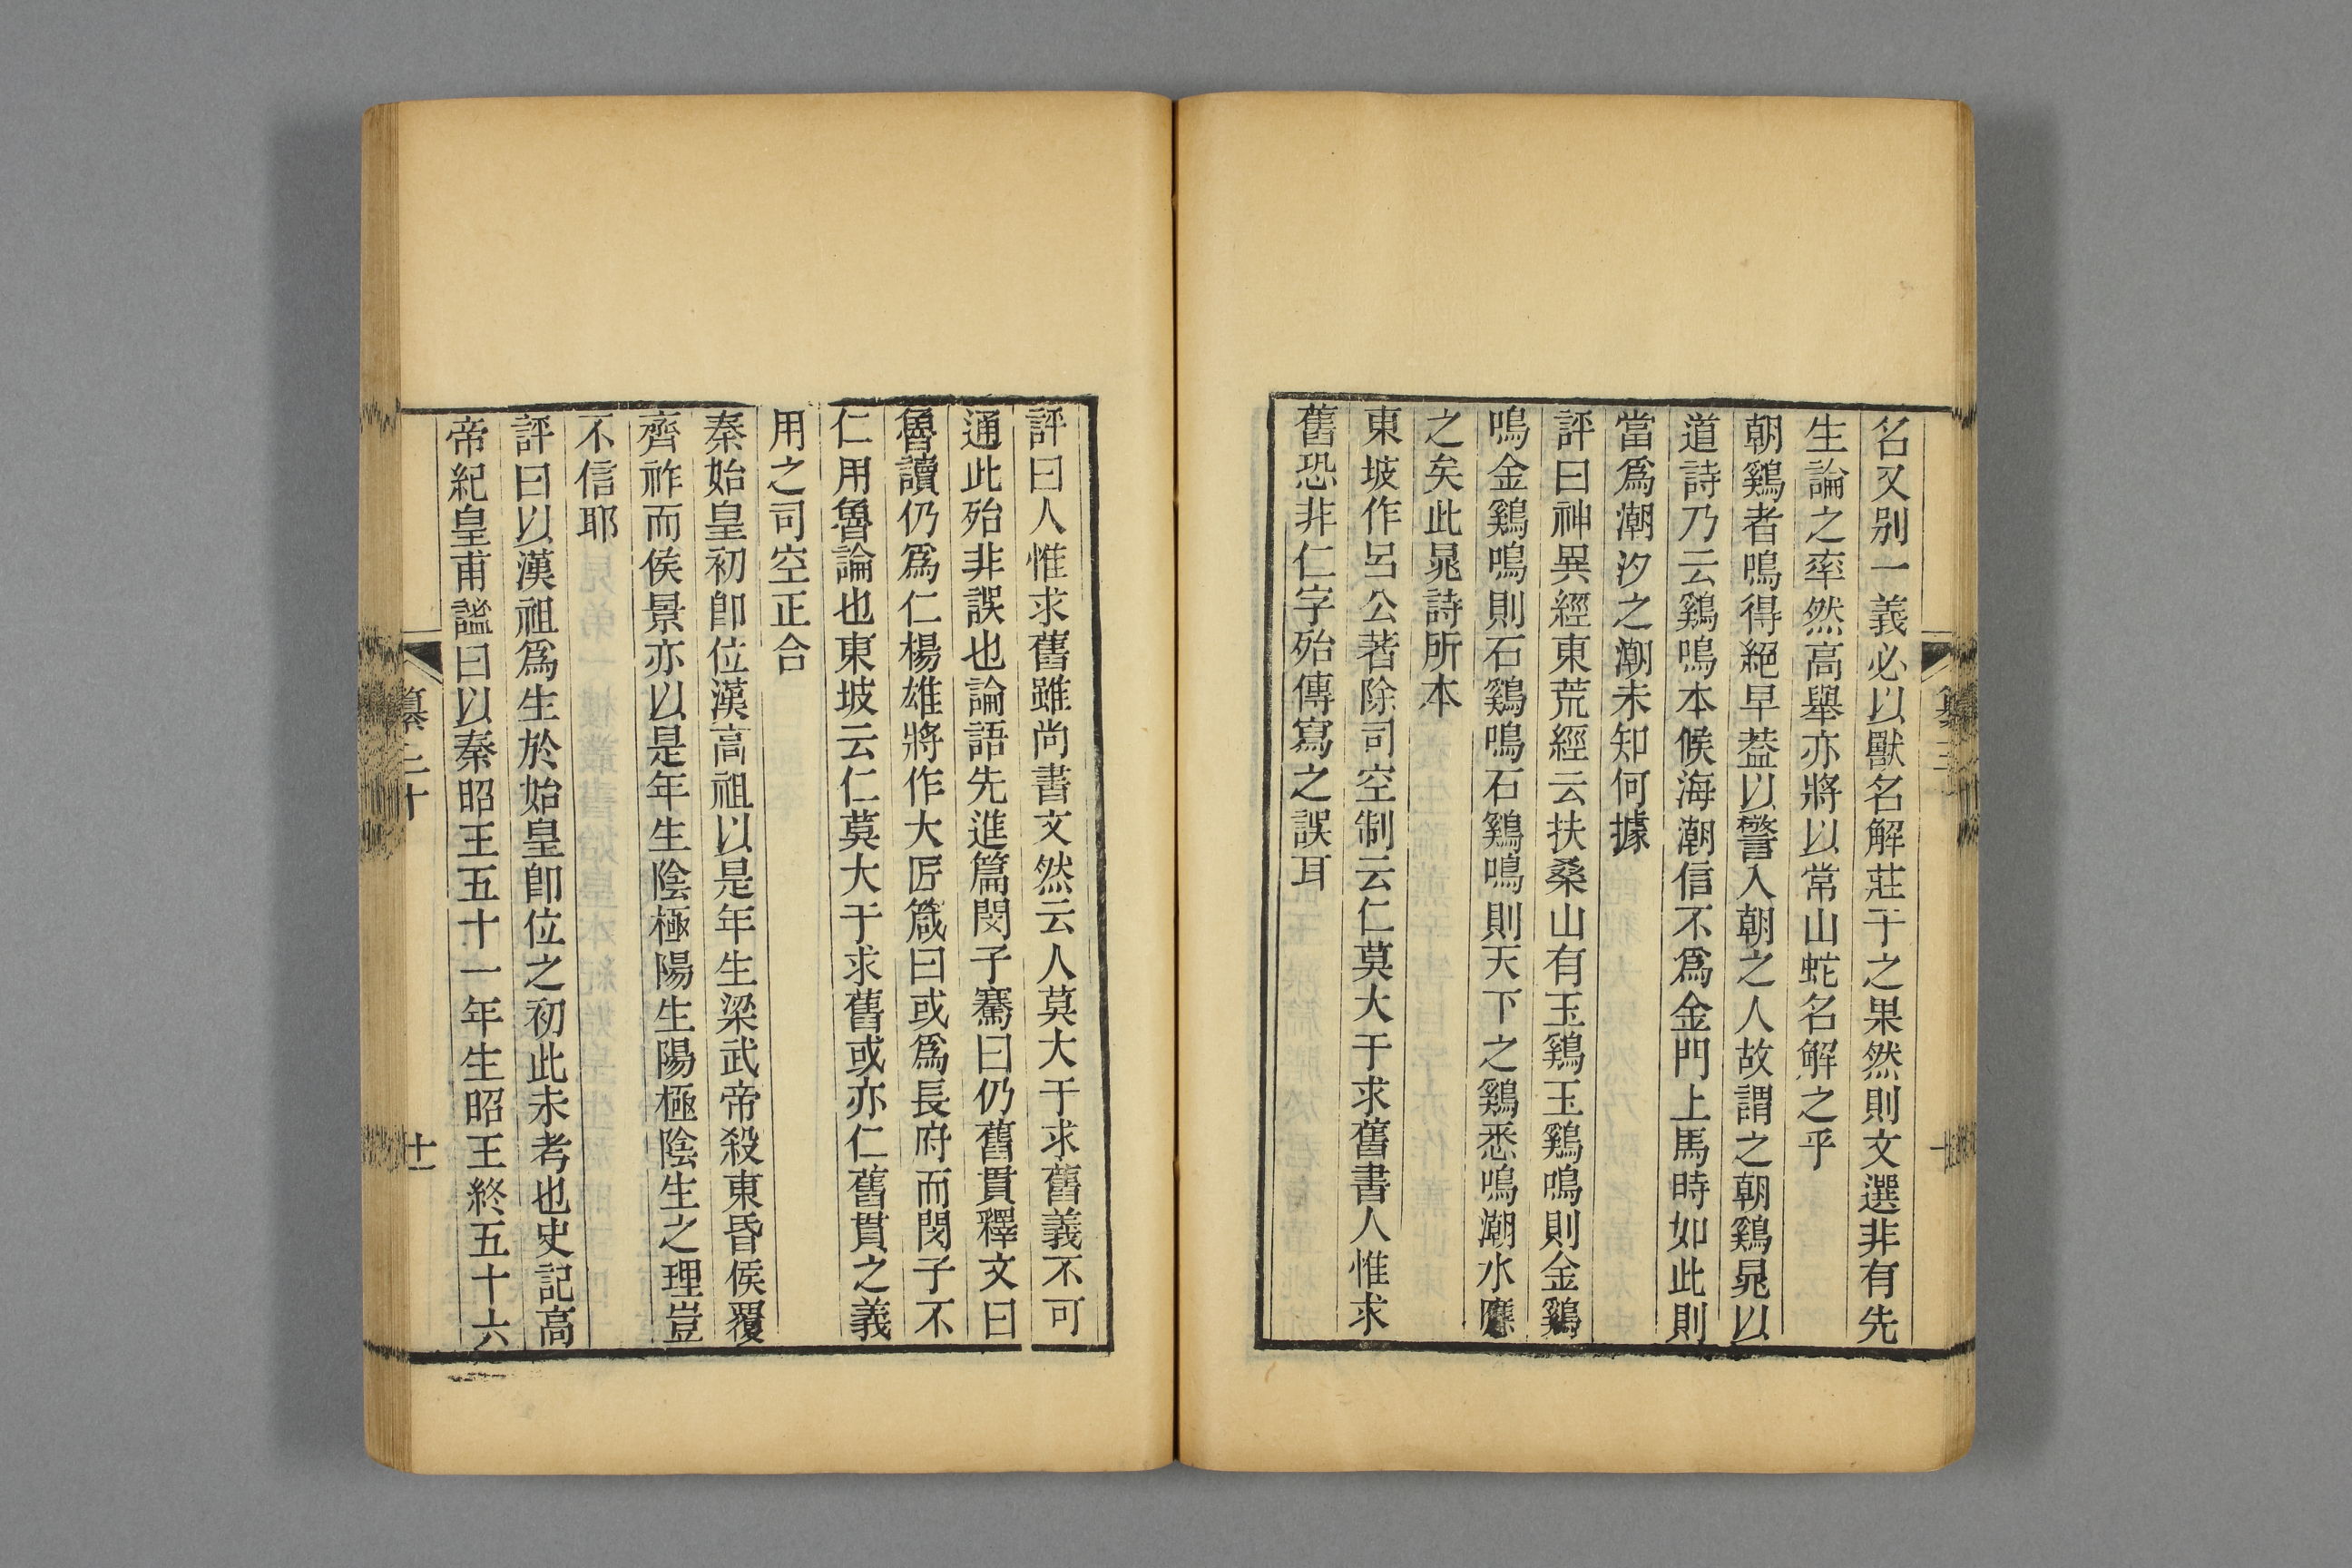 名又别一義必以獸名解莊子之果然則文選非有先
生論之率然高舉亦將以常山蛇名解之乎
朝鷄者鳴得絕早葢以警入朝之人故謂之朝鷄晁以
道詩乃云鷄鳴本候海潮信不爲金門上馬時如此則
當爲潮汐之潮未知何據
評曰神異經東荒經云扶桑山有玉鷄玉鷄鳴則金鷄
鳴金鷄鳴則石鷄鳴石鷄鳴則天下之鷄悉鳴潮水應
之矣此晁詩所本
東坡作呂公著除司空制云仁莫大于求舊書人惟求
舊恐非仁字殆傳寫之誤耳
評曰人惟求舊雖尚書文然云人莫大于求舊義不可
通此殆非誤也論語先進篇閔子騫曰仍舊貫釋文曰
魯讀仍爲仁楊雄將作大匠箴曰或爲長府而閔子不
仁用魯論也東坡云仁莫大于求舊或亦仁舊貫之義
用之司空正合
秦始皇初卽位漢高祖以是年生梁武帝殺東昏侯覆
齊祚而侯景亦以是年生陰極陽生陽極陰生之理豈
不信耶
評曰以漢祖爲生於始皇卽位之初此未考也史記高
帝紀皇甫謐曰以秦昭王五十一年生昭王終五十六
十一